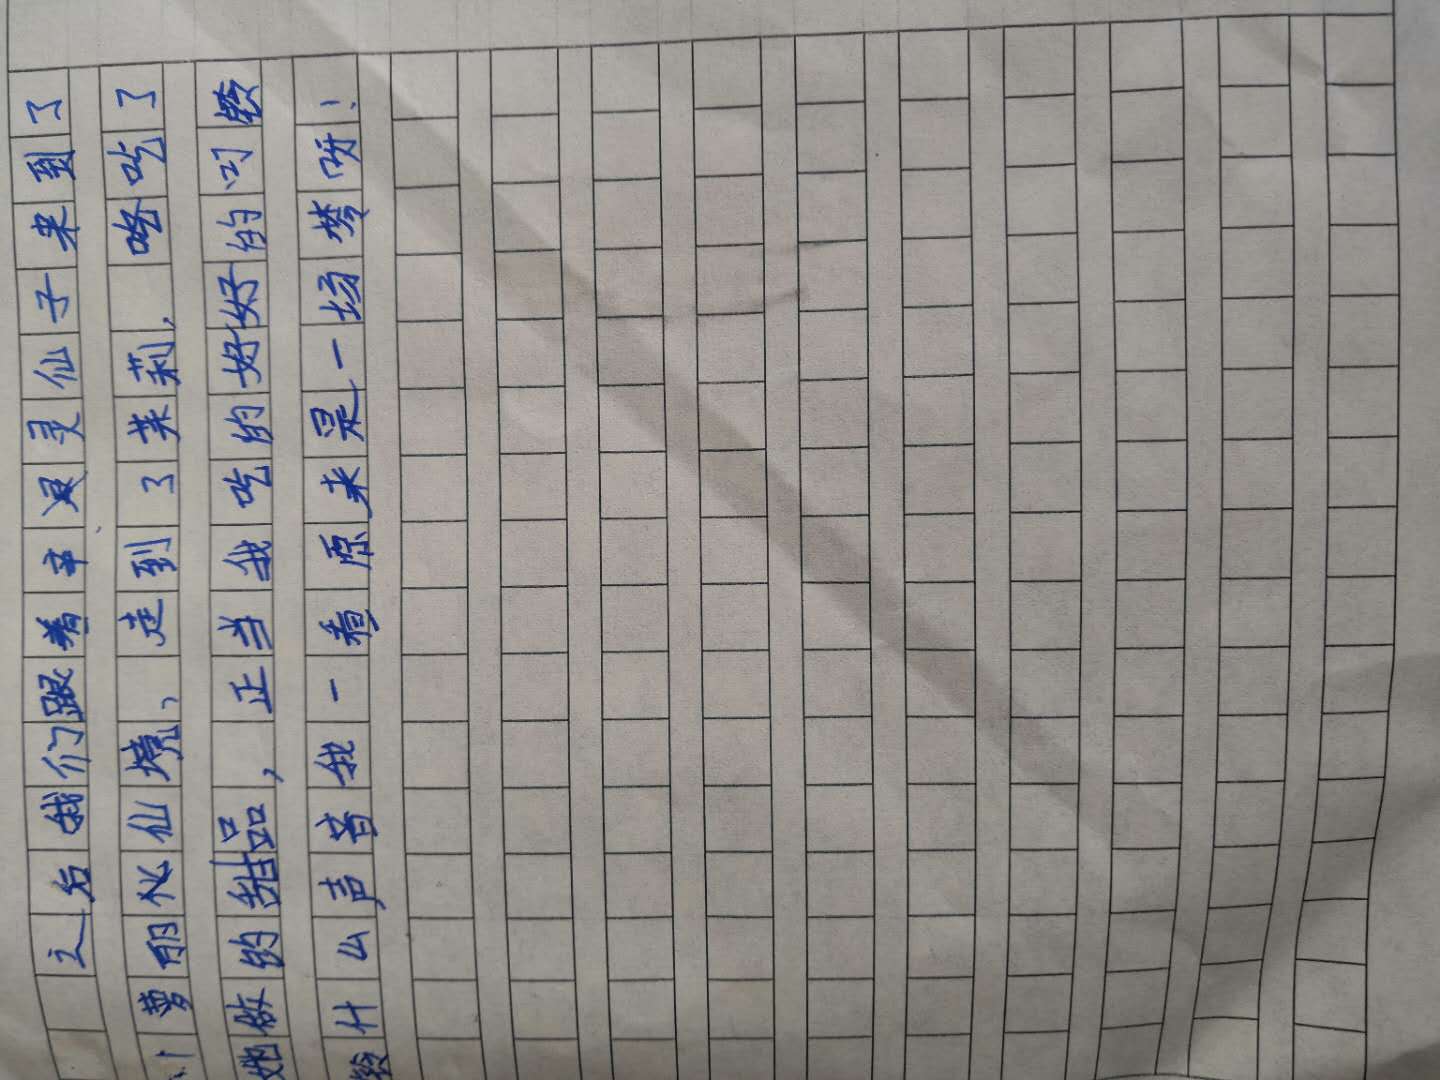 之后我们跟着辛灵灵仙子来到了
萝丽仙境,走到了茉莉,咚吃了
她做的甜品,正当我吃的好好的叮铃
铃什么声音我一看原来是一场梦呀!